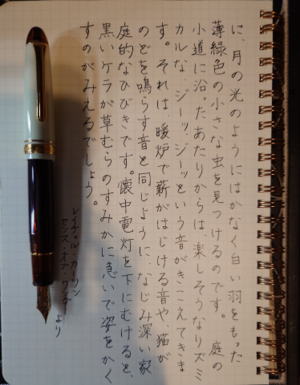 に、月の光のようにはかなく白い羽をもった
薄緑色の小さな虫を見つけるのです。庭の
小道に沿ったあたりからは、楽しそうなリズミ
カルな、ジーッ、ジーッという音がきこえてきま
す。それは、暖炉で薪がはじける音や、猫が
のどを鳴らす音と同じように、なじみ深い家
庭的なひびきです。懐中電灯を下にむけると、
黒いケラが草むらのすみかに急いで姿をかく
すのがみえるでしょう。
レイチェル・カーソン
センス・オブ・ワンダーより